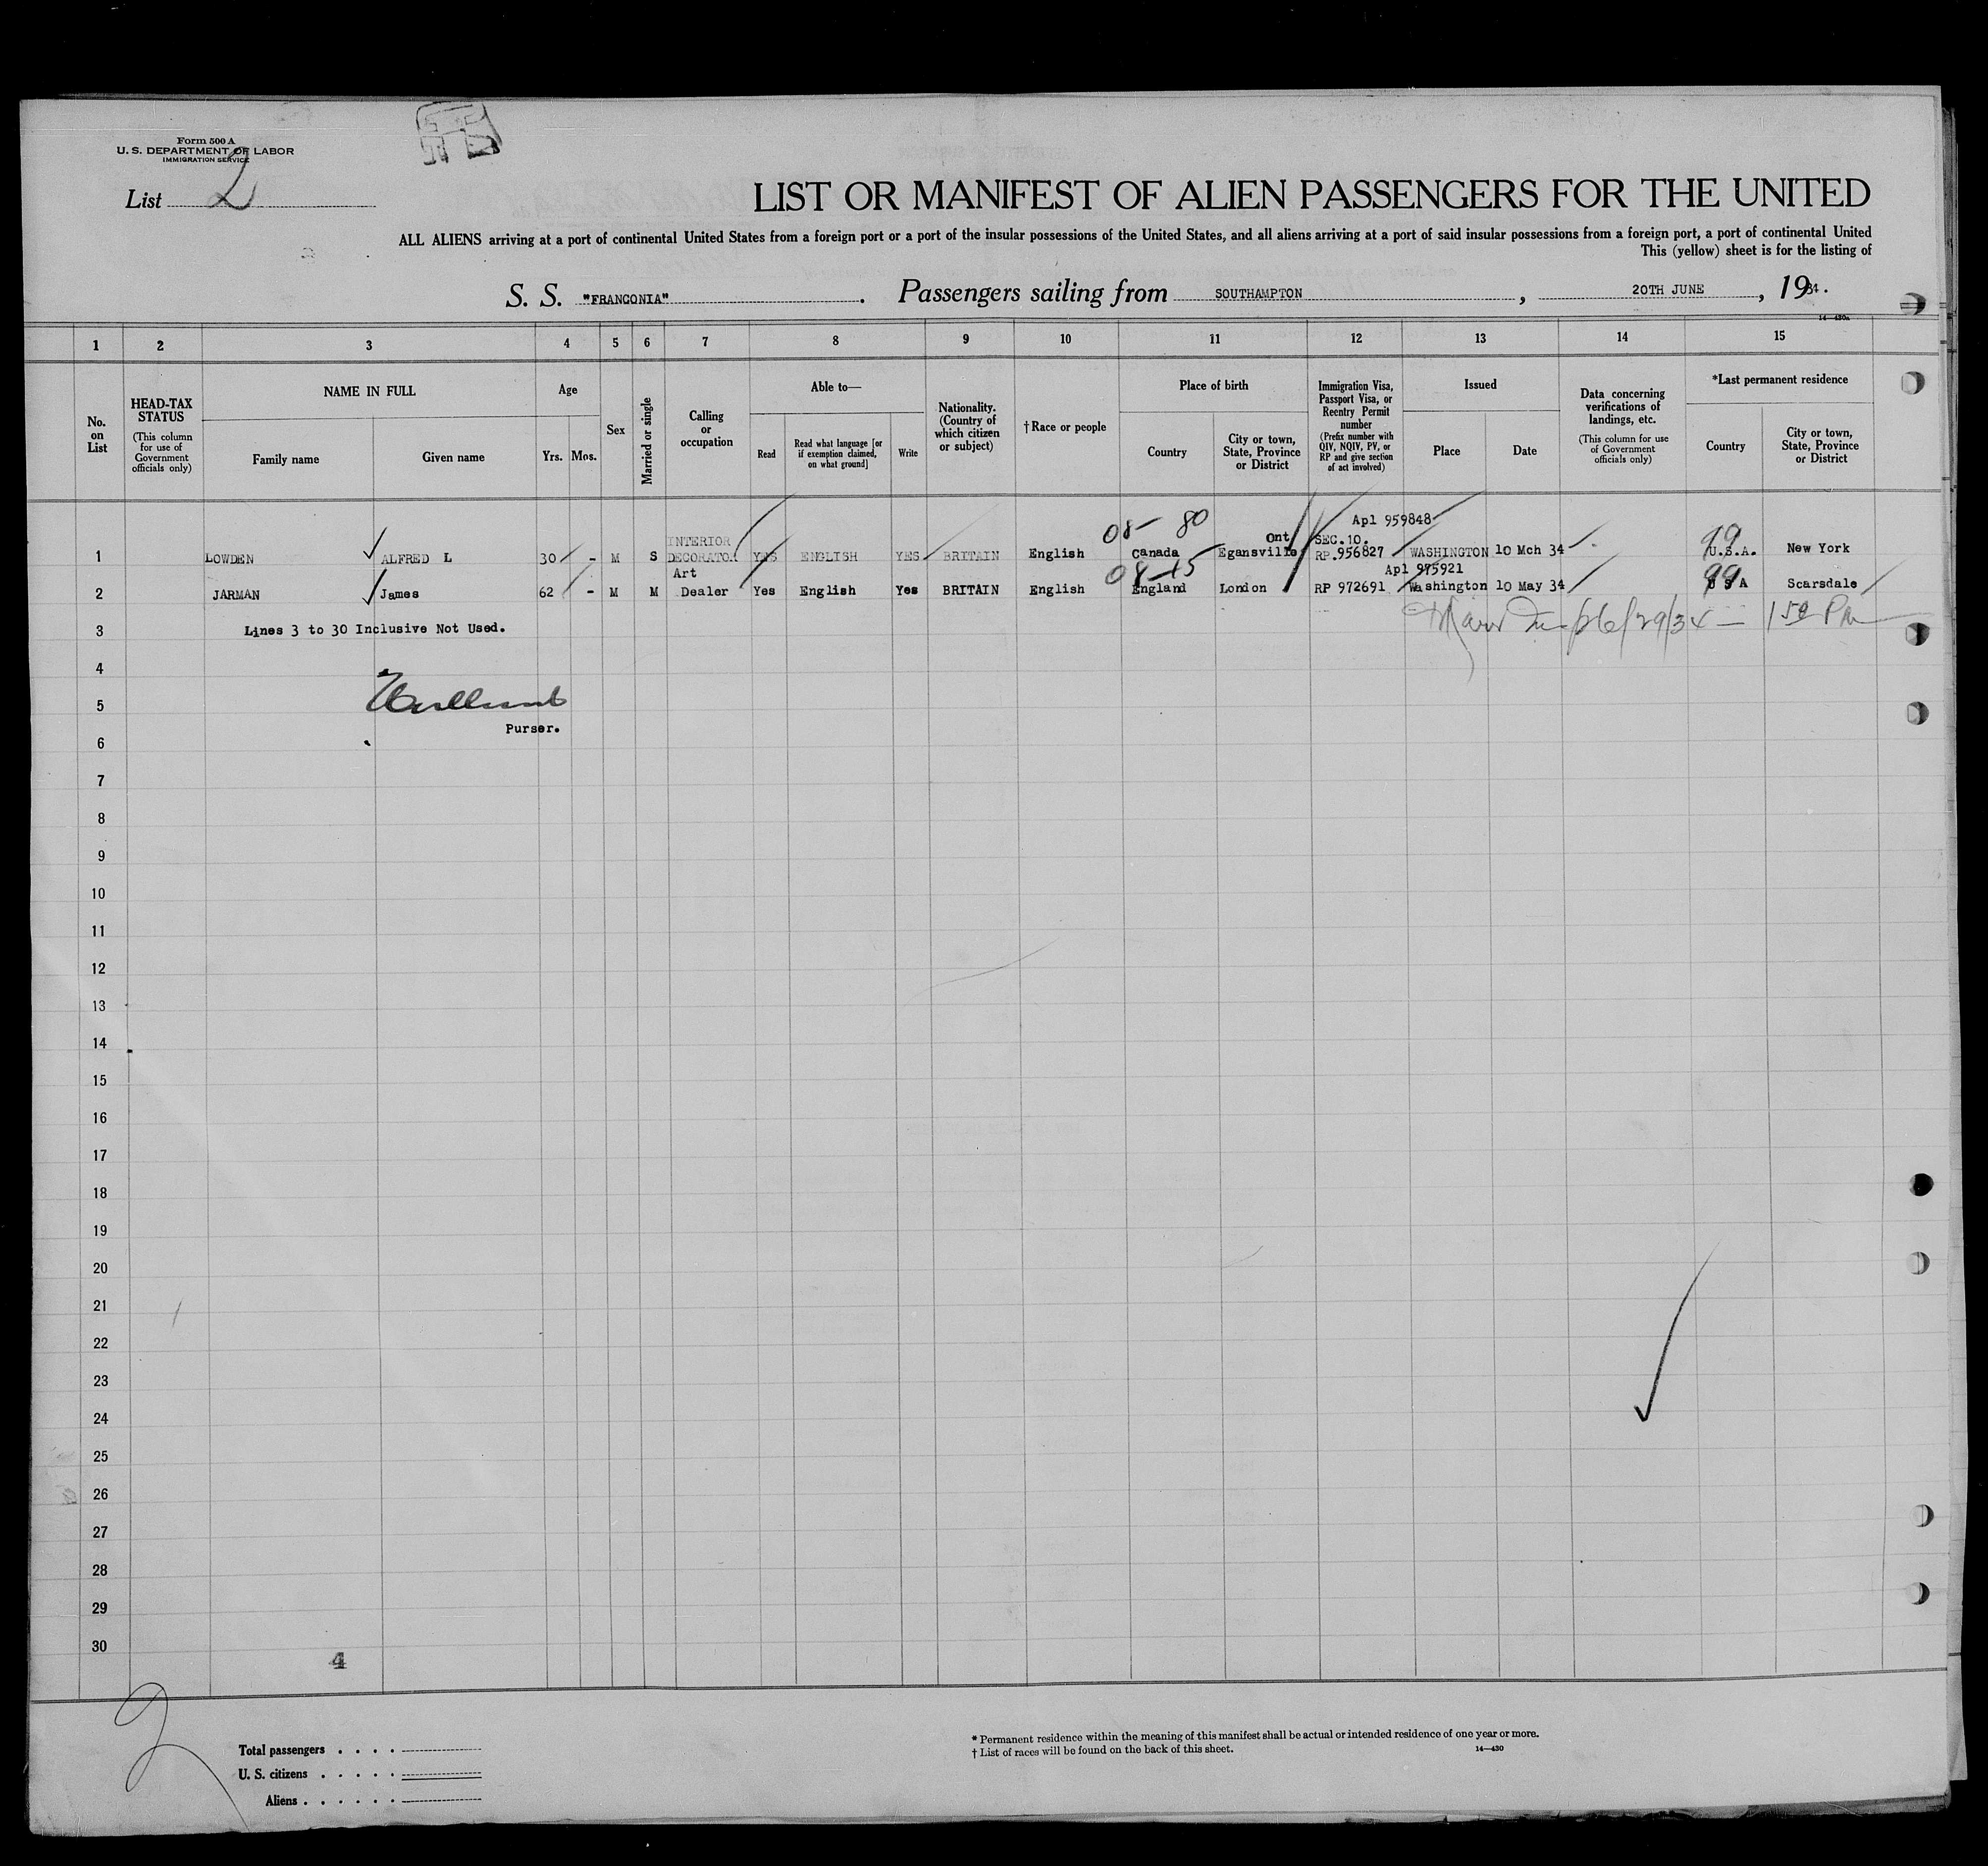 Form 500 A
U. S. DEPARTMENT OF LABOR
IMMIGRATION SERVICE
List 2
LIST OR MANIFEST OF ALIEN PASSENGERS FOR THE UNITED
ALL ALIENS arriving at a port of continental United States from a foreign port or a port of the insular possessions of the United States, and all aliens arriving at a port of said insular possessions from a foreign port, a port of continental United
This (yellow) sheet is for the listing of
S. S. "FRANCONIA" . Passengers sailing from SOUTHAMPTON , 20TH JUNE , 1934.
14—430a
1 2 3 4 5 6 7 8 9 10 11 12 13 14 15
No. on List
HEAD-TAX STATUS
(This column for use of Government officials only)
NAME IN FULL
Family name Given name
Age
Yrs. Mos.
Sex
Married or single
Calling or occupation
Able to—
Read
Read what language [or if exemption claimed, on what ground]
Write
Nationality. (Country of which citizen or subject)
†Race or people
Place of birth
Country
City or town, State, Province or District
Immigration Visa, Passport Visa, or Reentry Permit number
(Prefix number with QIV, NQIV, PV, or RP and give section of act involved)
Issued
Place Date
Data concerning verifications of landings, etc.
(This column for use of Government officials only)
*Last permanent residence
Country
City or town, State, Province or District
08- 80 Apl 959848
INTERIOR Ont SEC.10. 99
1 LOWDEN ALFRED L 30 - M S DECORATOR YES ENGLISH YES BRITAIN English Canada Egansville RP.956827 WASHINGTON 10 Mch 34 U.S.A. New York
Art 08-15 Apl 975921 99
2 JARMAN James 62 - M M Dealer Yes English Yes BRITAIN English England London RP 972691 Washington 10 May 34 U S A Scarsdale
3 Lines 3 to 30 Inclusive Not Used.
6/29/34
4
5
Purser.
6
7
8
9
10
11
12
13
14
15
16
17
18
19
20
21
22
23
24
25
26
27
28
29
30
4
2
Total passengers . . . .
U. S. citizens . . . . .
Aliens . . . . . .
* Permanent residence within the meaning of this manifest shall be actual or intended residence of one year or more.
† List of races will be found on the back of this sheet. 14—430